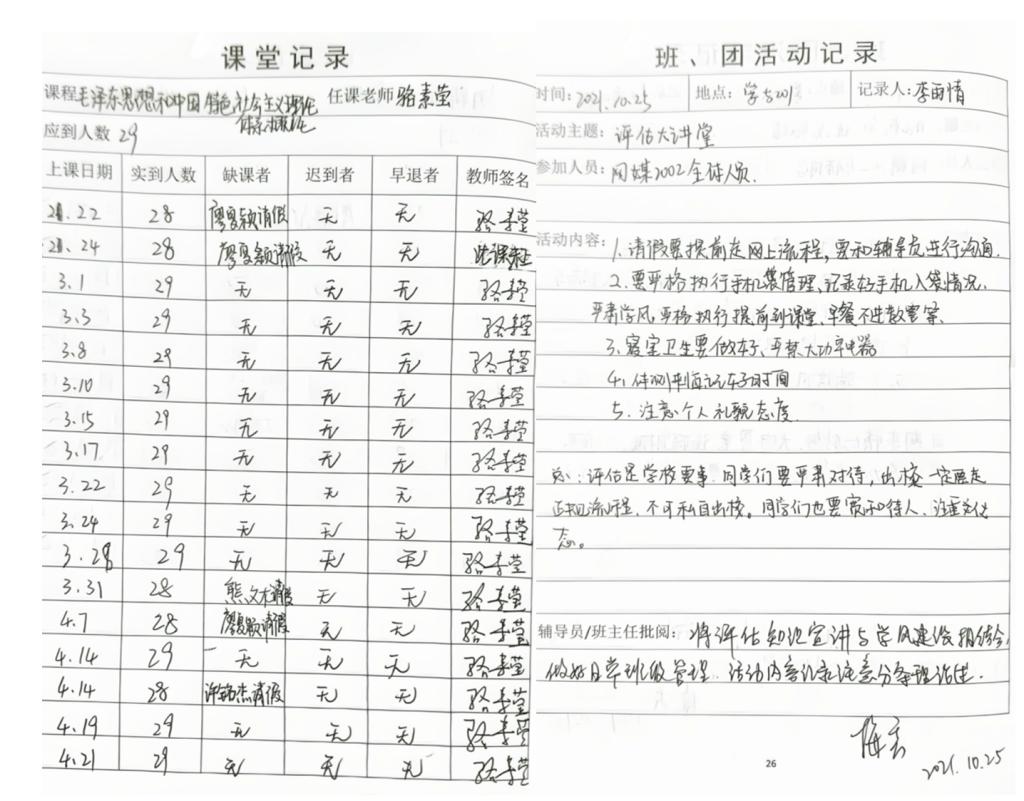 课堂记录
课程 毛泽东思想和中国特色社会主义理论
体系概论
任课老师 骆素莹
应到人数 29
上课日期 实到人数 缺课者 迟到者 早退者 教师签名
2.22 28 廖夏颖请假 无 无 骆素莹
2.24 28 廖夏颖请假 无 无
3.1 29 无 无 无 骆素莹
3.3 29 无 无 无 骆素莹
3.8 29 无 无 无 骆素莹
3.10 29 无 无 无 骆素莹
3.15 29 无 无 无 骆素莹
3.17 29 无 无 无 骆素莹
3.22 29 无 无 无 骆素莹
3.24 29 无 无 无 骆素莹
3.28 29 无 无 无 骆素莹
3.31 28 熊 请假 无 无 骆素莹
4.7 28 廖夏颖请假 无 无 骆素莹
4.14 29 无 无 无 骆素莹
4.14 28 请假 无 无 骆素莹
4.19 29 无 无 无 骆素莹
4.21 29 无 无 无 骆素莹
班、团活动记录
时间: 2021.10.25 地点: 学方201 记录人: 李雨情
活动主题: 评估大讲堂
参加人员: 网媒2002全体人员.
活动内容: 1.请假要提前走网上流程,要和辅导员进行沟通.
2.要严格执行手机袋管理、记录好手机入袋情况.
严肃学风,严格执行提前到课堂、早餐不进教室等.
3.寝室卫生要做好、严禁大功率电器
4.体测 记好时间
5.注意个人礼貌态度
总:评估是学校要事.同学们要严肃对待,出校一定要走
正规流程,不可私自出校。同学们也要宽和待人、注重
态。
辅导员/班主任批阅: 将评估知识宣讲与学风建设相结合,
做好日常班级管理.活动内容记录注意分条理论述.
2021.10.25
26